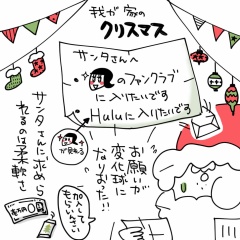 我が家の
クリスマス
サンタさんへ
のファンクラブ
に入りたいです
Huluに入りたいです
が見れる
お願いが
変化球に
なりおった!!
サンタさんに求めら
れるのは柔軟さ
加入して
もらいなさい